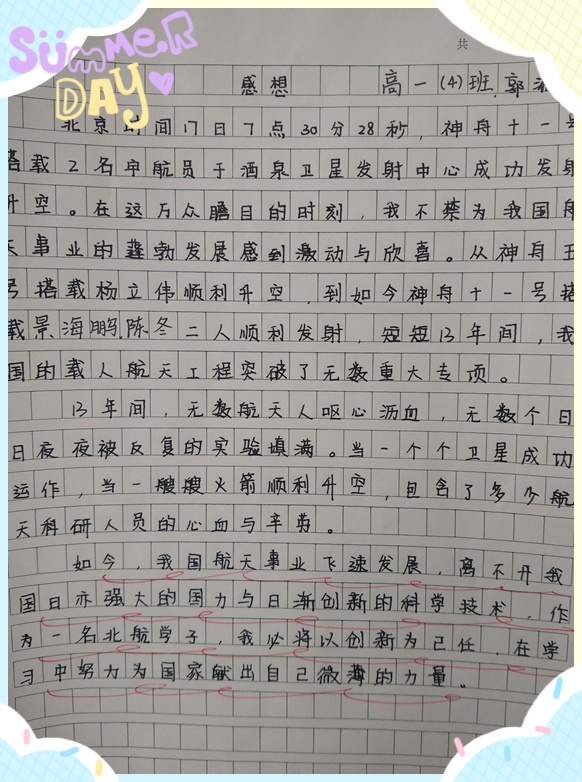 SUMMER
DAY
共
感想 高一(4)班 郭
北京时间17日7点30分28秒，神舟十一号
搭载2名宇航员于酒泉卫星发射中心成功发射
升空。在这万众瞩目的时刻，我不禁为我国航
天事业的蓬勃发展感到激动与欣喜。从神舟五
号搭载杨立伟顺利升空，到如今神舟十一号搭
载景海鹏，陈冬二人顺利发射，短短13年间，我
国的载人航天工程突破了无数重大专项。
13年间，无数航天人呕心沥血，无数个日
日夜夜被反复的实验填满。当一个个卫星成功
运作，当一艘艘火箭顺利升空，包含了多少航
天科研人员的心血与辛劳。
如今，我国航天事业飞速发展，离不开我
国日亦强大的国力与日渐创新的科学技术，作
为一名北航学子，我必将以创新为己任，在学
习中努力为国家献出自己微薄的力量。